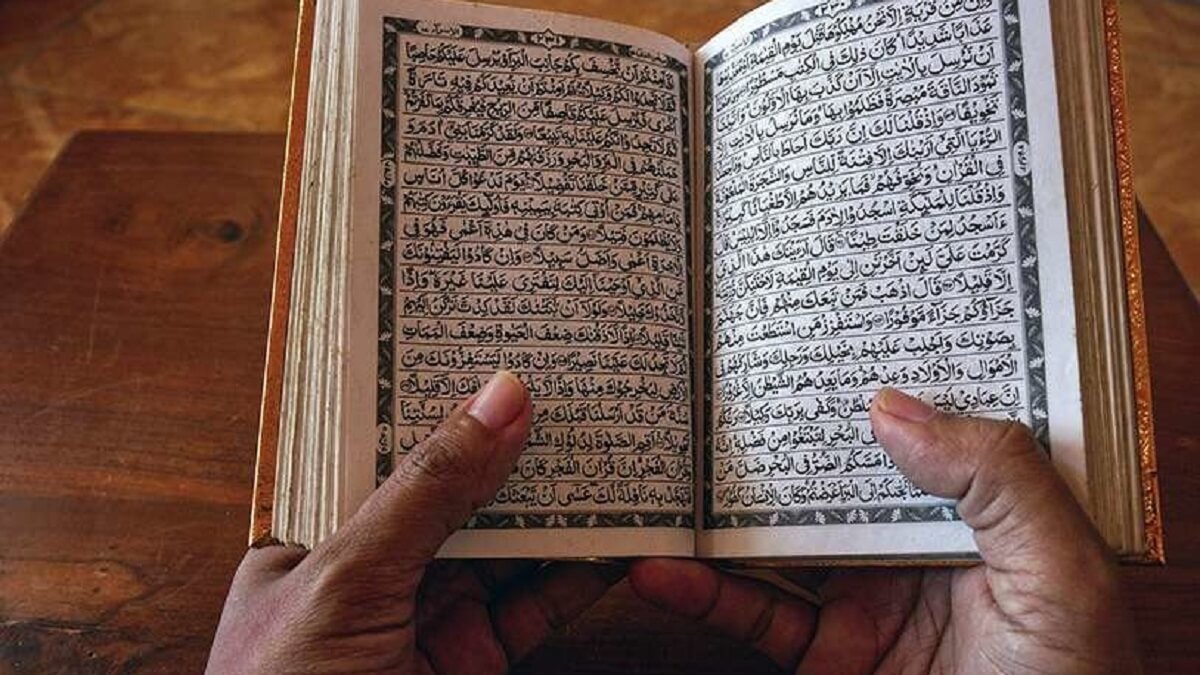 وَاِنْ مِّنْ قَرْيَةٍ اِلَّا نَحْنُ مُهْلِكُوْهَا قَبْلَ يَوْمِ الْقِيٰمَةِ
عَذَابًا شَدِيْدًا كَانَ ذٰلِكَ فِى الْكِتٰبِ مَسْطُوْرًا
اَنْ نُّرْسِلَ بِالْاٰيٰتِ اِلَّا اَنْ كَذَّبَ بِهَا الْاَوَّلُوْنَ وَاٰتَيْنَا
ثَمُوْدَ النَّاقَةَ مُبْصِرَةً فَظَلَمُوْا بِهَا وَمَا نُرْسِلُ بِالْاٰيٰتِ اِلَّا
تَخْوِيْفًا وَاِذْ قُلْنَا لَكَ اِنَّ رَبَّكَ اَحَاطَ بِالنَّاسِ وَمَا جَعَلْنَا
الرُّءْيَا الَّتِىْ اَرَيْنٰكَ اِلَّا فِتْنَةً لِّلنَّاسِ وَالشَّجَرَةَ الْمَلْعُوْنَةَ
فِى الْقُرْاٰنِ وَنُخَوِّفُهُمْ فَمَا يَزِيْدُهُمْ اِلَّا طُغْيَانًا كَبِيْرًا
وَاِذْ قُلْنَا لِلْمَلٰٓئِكَةِ اسْجُدُوْا لِاٰدَمَ فَسَجَدُوْٓا اِلَّآ اِبْلِيْسَ قَالَ
ءَاَسْجُدُ لِمَنْ خَلَقْتَ طِيْنًا قَالَ اَرَءَيْتَكَ هٰذَا الَّذِىْ
كَرَّمْتَ عَلَىَّ لَئِنْ اَخَّرْتَنِ اِلٰى يَوْمِ الْقِيٰمَةِ لَاَحْتَنِكَنَّ ذُرِّيَّتَهٗٓ
اِلَّا قَلِيْلًا قَالَ اذْهَبْ فَمَنْ تَبِعَكَ مِنْهُمْ فَاِنَّ جَهَنَّمَ
جَزَآؤُكُمْ جَزَآءً مَّوْفُوْرًا وَاسْتَفْزِزْ مَنِ اسْتَطَعْتَ مِنْهُمْ
بِصَوْتِكَ وَاَجْلِبْ عَلَيْهِمْ بِخَيْلِكَ وَرَجِلِكَ وَشَارِكْهُمْ فِى
الْاَمْوَالِ وَالْاَوْلَادِ وَعِدْهُمْ وَمَا يَعِدُهُمُ الشَّيْطٰنُ اِلَّا غُرُوْرًا
اِنَّ عِبَادِىْ لَيْسَ سُلْطٰنٌ وَكَفٰى بِرَبِّكَ وَكِيْلًا رَبُّكُمُ
فِى الْبَحْرِ لِتَبْتَغُوْا مِنْ فَضْلِهٖ اِنَّهٗ
وَاِذَا مَسَّكُمُ الضُّرُّ فِى الْبَحْرِ ضَلَّ مَنْ
نَجّٰىكُمْ اِلَى الْبَرِّ اَعْرَضْتُمْ وَكَانَ الْاِنْسَانُ كَفُوْرًا
اَفَاَمِنْتُمْ اَنْ يَّخْسِفَ بِكُمْ جَانِبَ الْبَرِّ اَوْ يُرْسِلَ عَلَيْكُمْ حَاصِبًا
ثُمَّ لَا تَجِدُوْا لَكُمْ وَكِيْلًا اَمْ اَمِنْتُمْ اَنْ يُّعِيْدَكُمْ فِيْهِ تَارَةً
اُخْرٰى فَيُرْسِلَ عَلَيْكُمْ قَاصِفًا مِّنَ الرِّيْحِ فَيُغْرِقَكُمْ بِمَا كَفَرْتُمْ
ثُمَّ لَا تَجِدُوْا لَكُمْ عَلَيْنَا بِهٖ تَبِيْعًا وَلَقَدْ كَرَّمْنَا بَنِىْٓ اٰدَمَ وَ
حَمَلْنٰهُمْ فِى الْبَرِّ وَالْبَحْرِ وَرَزَقْنٰهُمْ مِّنَ الطَّيِّبٰتِ وَفَضَّلْنٰهُمْ
عَلٰى كَثِيْرٍ مِّمَّنْ خَلَقْنَا تَفْضِيْلًا يَوْمَ نَدْعُوْا كُلَّ اُنَاسٍ
بِاِمَامِهِمْ فَمَنْ اُوْتِىَ كِتٰبَهٗ بِيَمِيْنِهٖ فَاُولٰٓئِكَ يَقْرَءُوْنَ كِتٰبَهُمْ
وَلَا يُظْلَمُوْنَ فَتِيْلًا وَمَنْ كَانَ فِىْ هٰذِهٖٓ اَعْمٰى فَهُوَ فِى
الْاٰخِرَةِ اَعْمٰى وَاَضَلُّ سَبِيْلًا وَاِنْ كَادُوْا لَيَفْتِنُوْنَكَ
عَنِ الَّذِىْٓ اَوْحَيْنَآ اِلَيْكَ لِتَفْتَرِىَ عَلَيْنَا غَيْرَهٗ وَاِذًا
لَّاتَّخَذُوْكَ خَلِيْلًا وَلَوْلَآ اَنْ ثَبَّتْنٰكَ لَقَدْ كِدْتَّ تَرْكَنُ اِلَيْهِمْ
شَيْئًا قَلِيْلًا اِذًا لَّاَذَقْنٰكَ ضِعْفَ الْحَيٰوةِ وَضِعْفَ الْمَمَاتِ
ثُمَّ لَا تَجِدُ لَكَ عَلَيْنَا نَصِيْرًا وَاِنْ كَادُوْا لَيَسْتَفِزُّوْنَكَ مِنَ
الْاَرْضِ لِيُخْرِجُوْكَ مِنْهَا وَاِذًا لَّا خِلٰفَكَ اِلَّا قَلِيْلًا
سُنَّةَ مَنْ قَدْ اَرْسَلْنَا قَبْلَكَ مِنْ لِسُنَّتِنَا
تَحْوِيْلًا اَقِمِ الصَّلٰوةَ لِدُلُوْكِ الشَّمْسِ
وَقُرْاٰنَ الْفَجْرِ اِنَّ قُرْاٰنَ الْفَجْرِ كَانَ
فَتَهَجَّدْ بِهٖ نَافِلَةً لَّكَ عَسٰٓى اَنْ يَّبْعَثَكَ